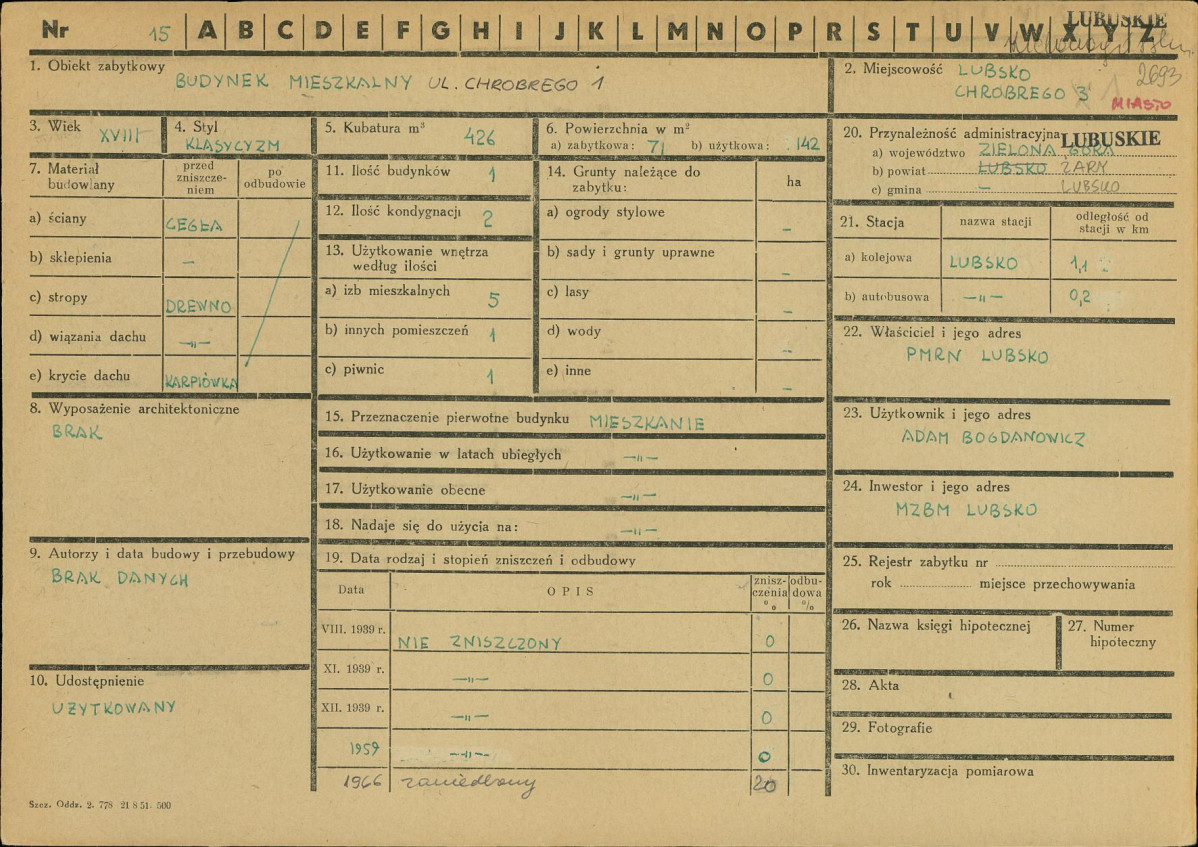 Nr 15 A B C D E F G H I J K L M N O P R S T U V W X Y Z
LUBUSKIE
2693
1. Obiekt zabytkowy
BUDYNEK MIESZKALNY UL. CHROBREGO 1
2. Miejscowość LUBSKO
CHROBREGO 3
MIASTO
3. Wiek XVIII
4. Styl
KLASYCYZM
5. Kubatura m³ 426
6. Powierzchnia w m²
a) zabytkowa: 71 b) użytkowa: 142
20. Przynależność administracyjna LUBUSKIE
a) województwo ZIELONA GÓRA
b) powiat LUBSKO ŻARY
c) gmina – LUBSKO
7. Materiał budowlany
przed zniszczeniem
po odbudowie
a) ściany CEGŁA
b) sklepienia –
c) stropy DREWNO
d) wiązania dachu –„–
e) krycie dachu KARPIÓWKA
11. Ilość budynków 1
12. Ilość kondygnacji 2
13. Użytkowanie wnętrza
według ilości
a) izb mieszkalnych 5
b) innych pomieszczeń 1
c) piwnic 1
14. Grunty należące do
zabytku:
ha
a) ogrody stylowe –
b) sady i grunty uprawne –
c) lasy –
d) wody –
e) inne –
21. Stacja
nazwa stacji
odległość od
stacji w km
a) kolejowa LUBSKO 1,1
b) autobusowa –„– 0,2
22. Właściciel i jego adres
PMRN LUBSKO
8. Wyposażenie architektoniczne
BRAK
15. Przeznaczenie pierwotne budynku MIESZKANIE
16. Użytkowanie w latach ubiegłych –„–
17. Użytkowanie obecne –„–
18. Nadaje się do użycia na: –„–
23. Użytkownik i jego adres
ADAM BOGDANOWICZ
24. Inwestor i jego adres
MZBM LUBSKO
9. Autorzy i data budowy i przebudowy
BRAK DANYCH
19. Data rodzaj i stopień zniszczeń i odbudowy
Data OPIS zniszczenia % odbudowa %
VIII. 1939 r. NIE ZNISZCZONY 0
XI. 1939 r. –„– 0
XII. 1939 r. –„– 0
1959 –„– 0
1966 zaniedbany 20
25. Rejestr zabytku nr
rok miejsce przechowywania
26. Nazwa księgi hipotecznej
27. Numer
hipoteczny
10. Udostępnienie
UŻYTKOWANY
28. Akta
29. Fotografie
30. Inwentaryzacja pomiarowa
Szcz. Oddz. 2. 778 21 8 51. 500